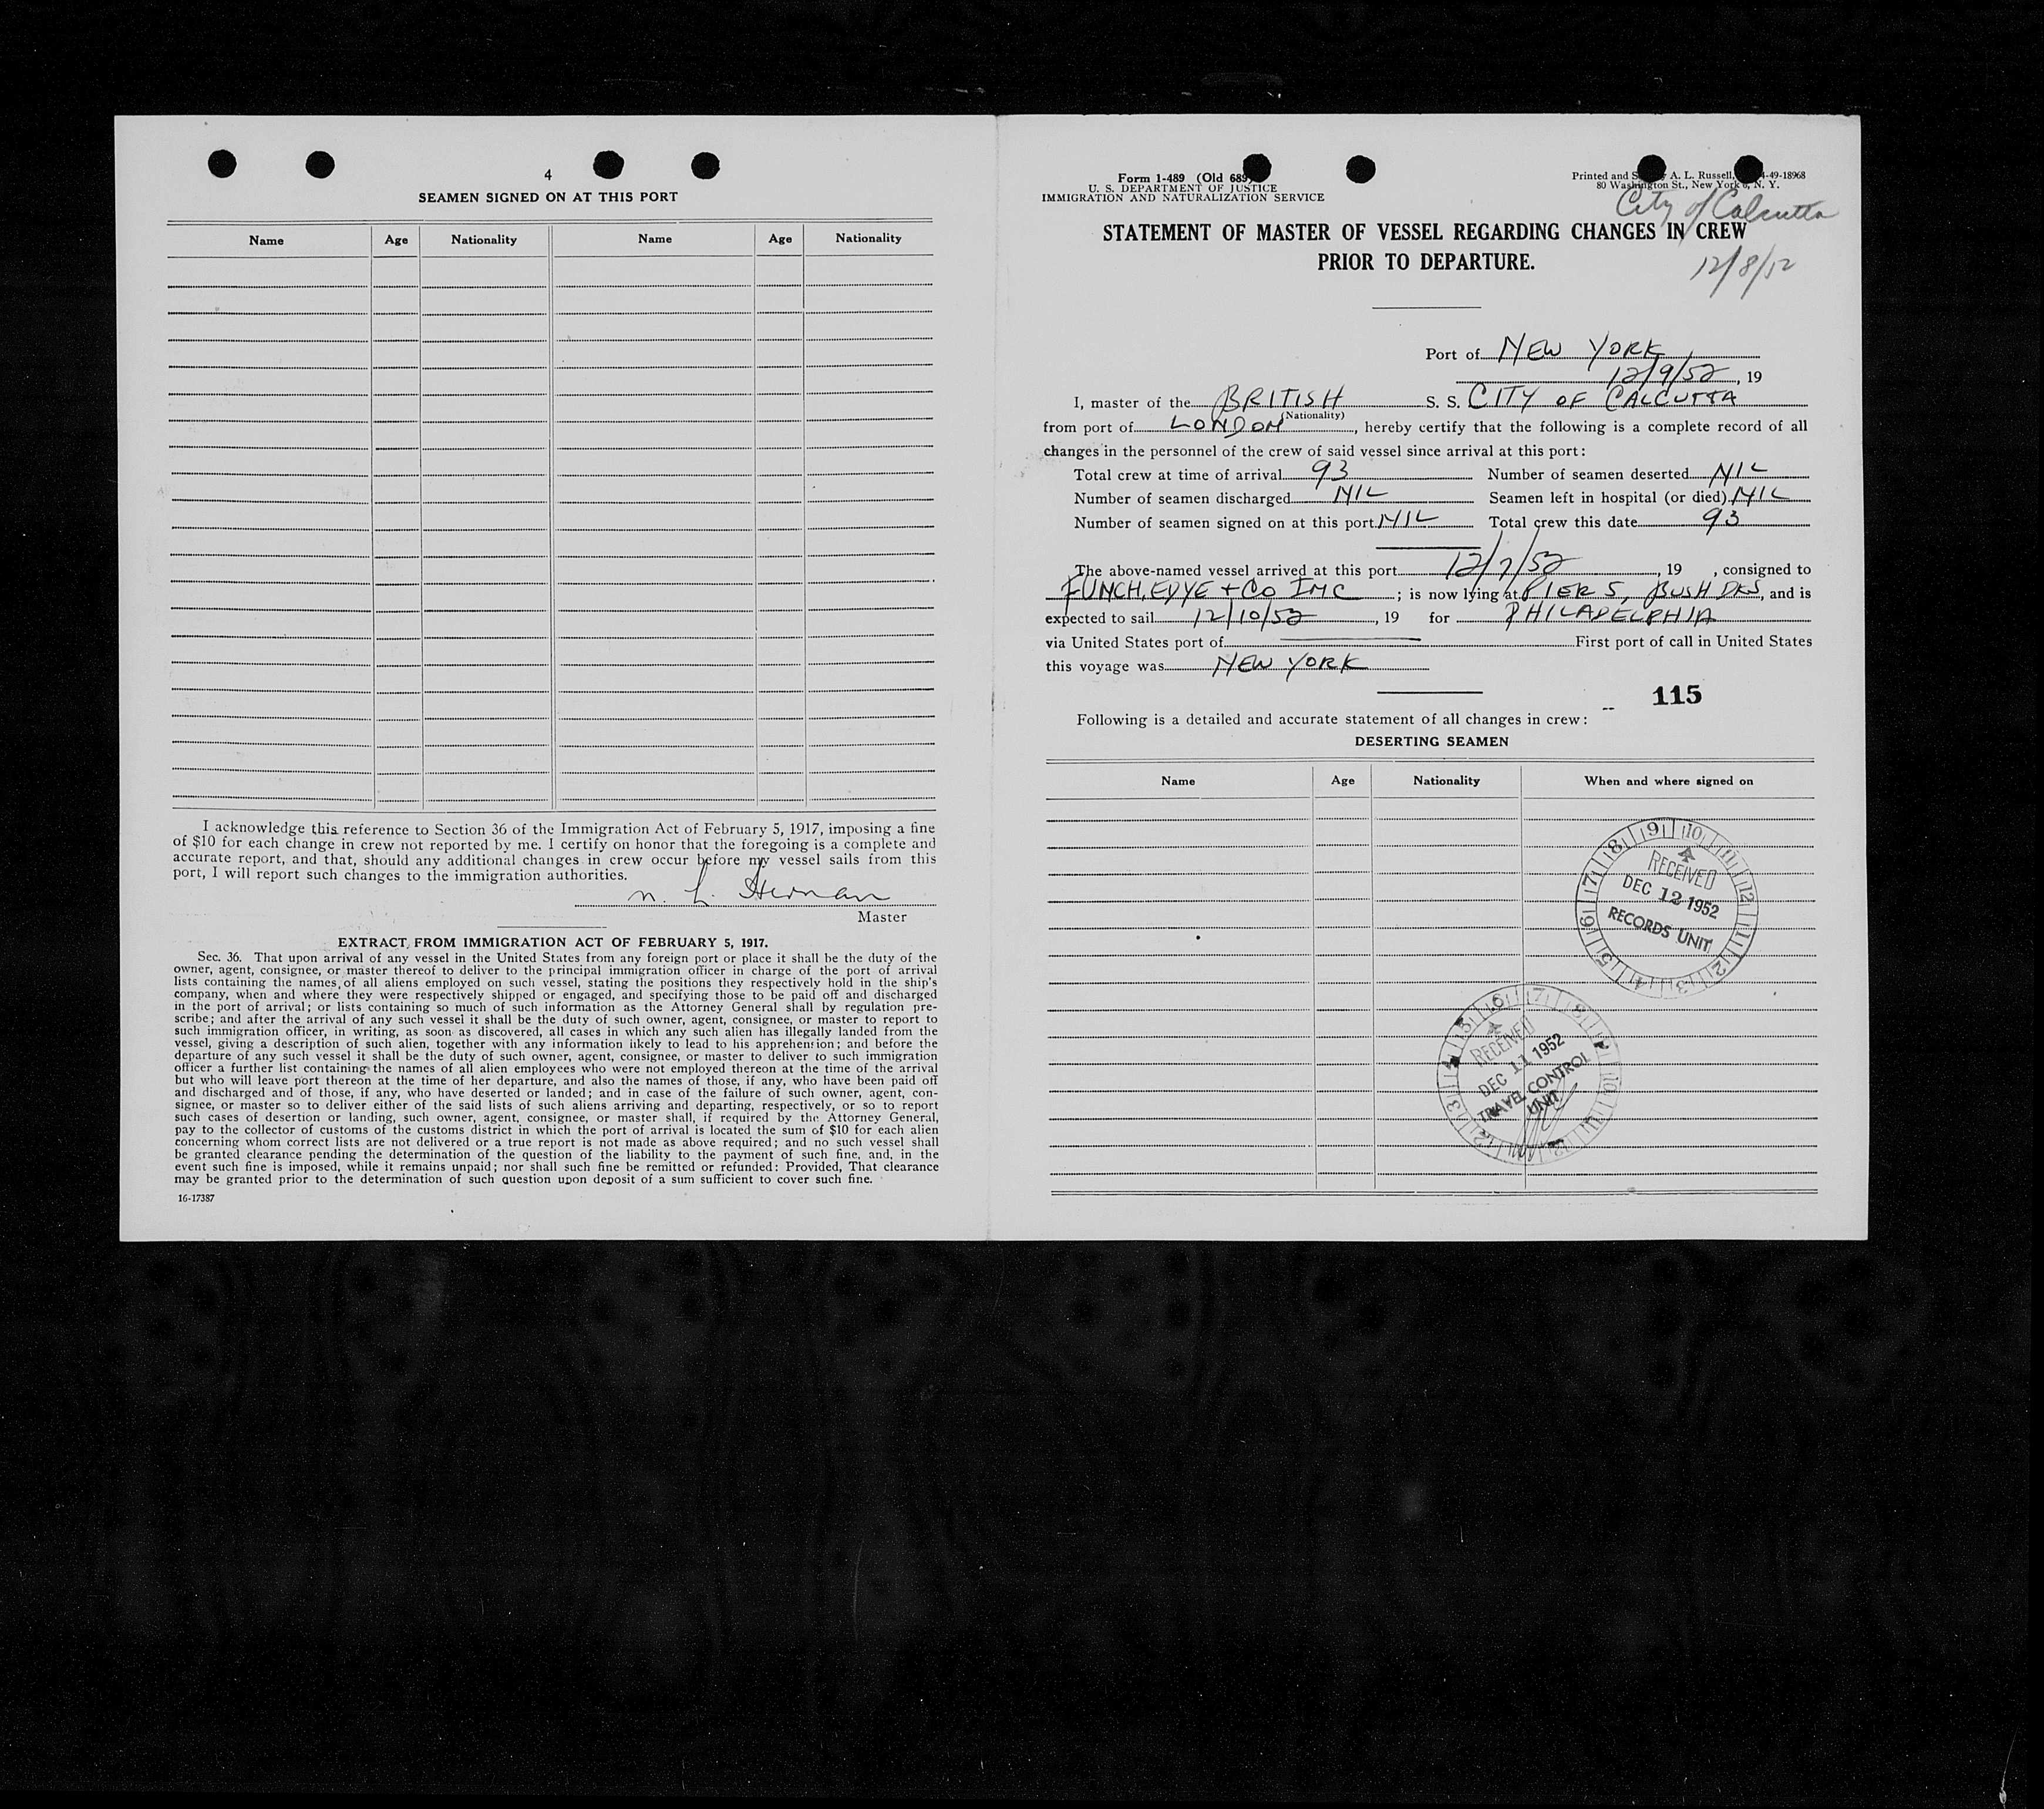 4
SEAMEN SIGNED ON AT THIS PORT
Name Age Nationality Name Age Nationality
I acknowledge this reference to Section 36 of the Immigration Act of February 5, 1917, imposing a fine
of $10 for each change in crew not reported by me. I certify on honor that the foregoing is a complete and
accurate report, and that, should any additional changes in crew occur before my vessel sails from this
port, I will report such changes to the immigration authorities.
Master
EXTRACT FROM IMMIGRATION ACT OF FEBRUARY 5, 1917.
Sec. 36. That upon arrival of any vessel in the United States from any foreign port or place it shall be the duty of the
owner, agent, consignee, or master thereof to deliver to the principal immigration officer in charge of the port of arrival
lists containing the names of all aliens employed on such vessel, stating the positions they respectively hold in the ship's
company, when and where they were respectively shipped or engaged, and specifying those to be paid off and discharged
in the port of arrival; or lists containing so much of such information as the Attorney General shall by regulation pre-
scribe; and after the arrival of any such vessel it shall be the duty of such owner, agent, consignee, or master to report to
such immigration officer, in writing, as soon as discovered, all cases in which any such alien has illegally landed from the
vessel, giving a description of such alien, together with any information likely to lead to his apprehension; and before the
departure of any such vessel it shall be the duty of such owner, agent, consignee, or master to deliver to such immigration
officer a further list containing the names of all alien employees who were not employed thereon at the time of the arrival
but who will leave port thereon at the time of her departure, and also the names of those, if any, who have been paid off
and discharged and of those, if any, who have deserted or landed; and in case of the failure of such owner, agent, con-
signee, or master so to deliver either of the said lists of such aliens arriving and departing, respectively, or so to report
such cases of desertion or landing, such owner, agent, consignee, or master shall, if required by the Attorney General,
pay to the collector of customs of the customs district in which the port of arrival is located the sum of $10 for each alien
concerning whom correct lists are not delivered or a true report is not made as above required; and no such vessel shall
be granted clearance pending the determination of the question of the liability to the payment of such fine, and, in the
event such fine is imposed, while it remains unpaid; nor shall such fine be remitted or refunded: Provided, That clearance
may be granted prior to the determination of such question upon deposit of a sum sufficient to cover such fine.
16-17387
Form 1-489 (Old 689)
U. S. DEPARTMENT OF JUSTICE
IMMIGRATION AND NATURALIZATION SERVICE
Printed and A. L. Russell, -49-18968
80 Washington St., New York 6, N. Y.
City of Calcutta
STATEMENT OF MASTER OF VESSEL REGARDING CHANGES IN CREW
PRIOR TO DEPARTURE.
12/8/52
Port of NEW YORK
12/9/52, 19
I, master of the BRITISH S. S. CITY OF CALCUTTA
(Nationality)
from port of LONDON, hereby certify that the following is a complete record of all
changes in the personnel of the crew of said vessel since arrival at this port:
Total crew at time of arrival 93 Number of seamen deserted NIL
Number of seamen discharged NIL Seamen left in hospital (or died) NIL
Number of seamen signed on at this port NIL Total crew this date 93
The above-named vessel arrived at this port 12/7/52, 19 , consigned to
FUNCH, EDYE + CO INC; is now lying at PIER 5, BUSH DKS, and is
expected to sail 12/10/52, 19 for PHILADELPHIA
via United States port of First port of call in United States
this voyage was NEW YORK
115
Following is a detailed and accurate statement of all changes in crew:
DESERTING SEAMEN
Name Age Nationality When and where signed on
RECEIVED
DEC 12 1952
RECORDS UNIT
RECEIVED
DEC 11 1952
TRAVEL CONTROL
UNIT